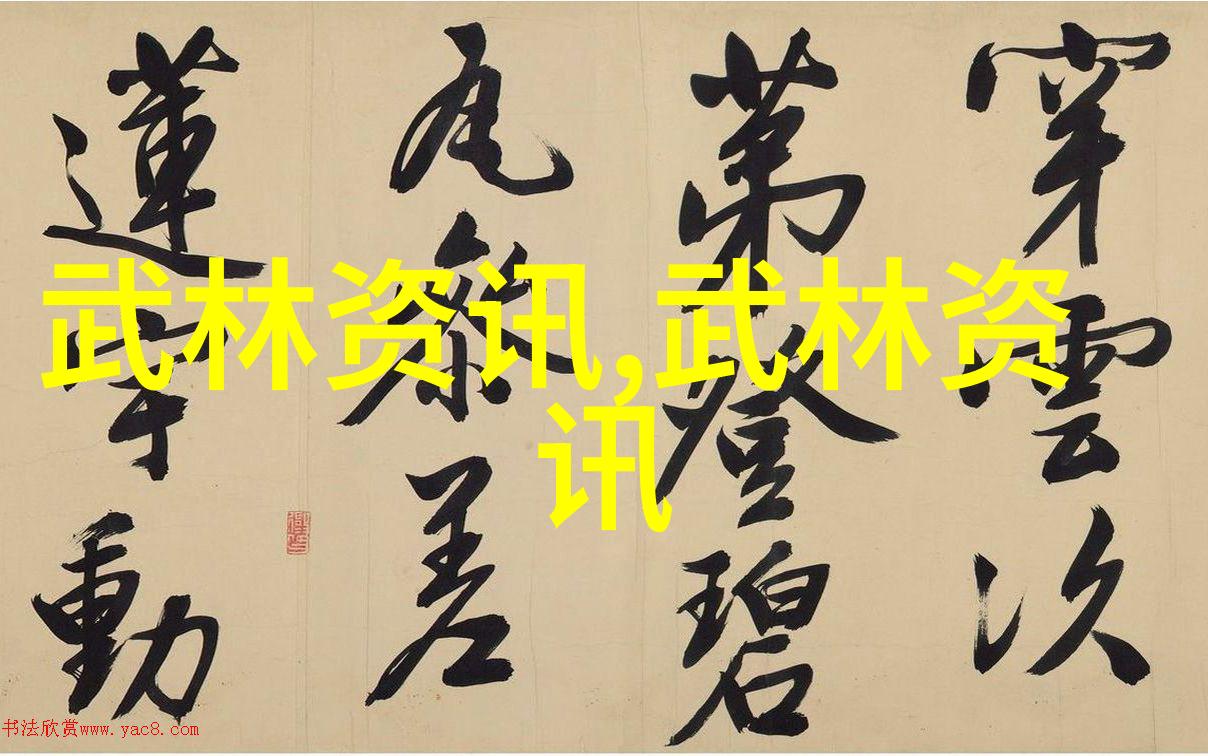 穿雲次
第登碧
瓦參差
蓮宇動
武林资讯,武林资
讯
书法欣赏www.yac8.com